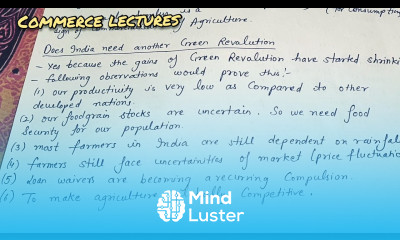 COMMERCE LECTURES
is a
(for consumption
sign of Agriculture.
Does India need another Green Revolution
- Yes because the gains of Green Revolution have started shrinki
- following observations would prove this:-
(1) our productivity is very low as compared to other
developed nations.
(2) our foodgrain stocks are uncertain. So we need food
security for our population.
(3) most farmers in India are still dependent on rainfal
(4) farmers still face uncertainities of market (price fluctuatio
(5) loan waivers are becoming a recurring compulsion.
(6) To make agriculture competitive.
Mind
Luster